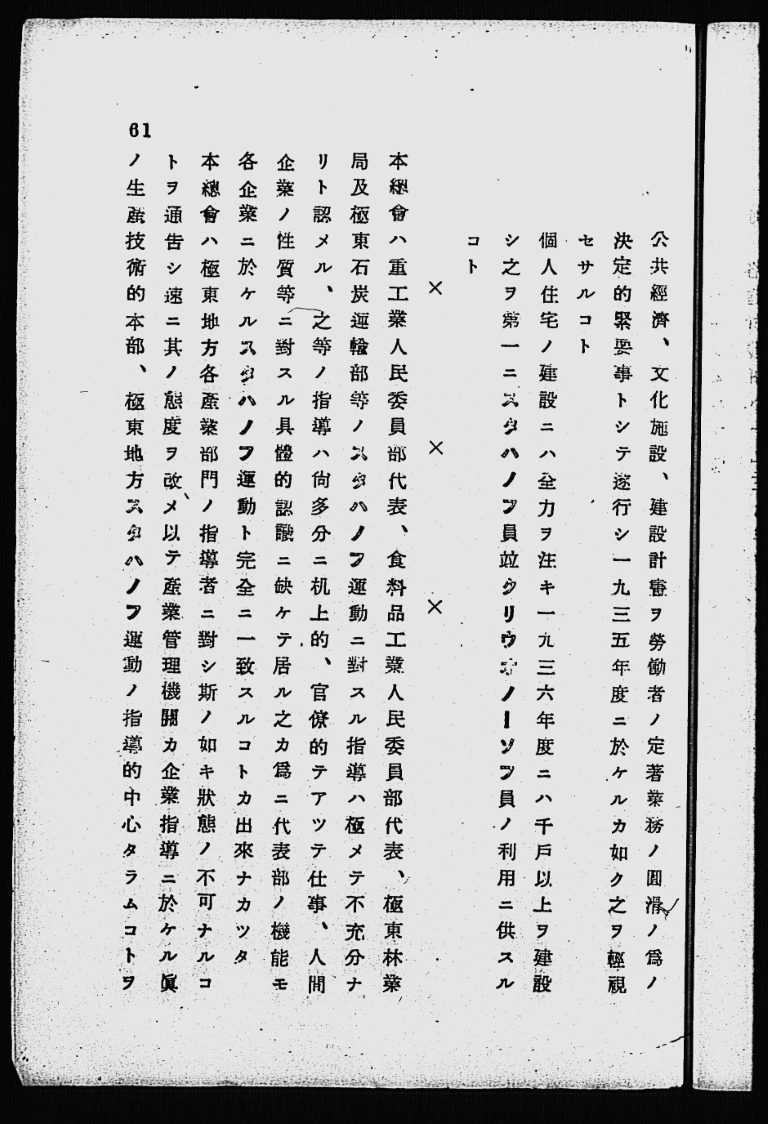 公共經濟、文化施設、建設計畫ヲ勞働者ノ定著業務ノ圓滑ノ爲ノ
決定的緊要事トシテ遂行シ一九三五年度ニ於ケルカ如ク之ヲ輕視
セサルコト
個人住宅ノ建設ニハ全力ヲ注キ一九三六年度ニハ千戶以上ヲ建設
シ之ヲ第一ニスタハノフ員竝クリウオノーソフ員ノ利用ニ供スル
コト
× × ×
本總會ハ重工業人民委員部代表、食料品工業人民委員部代表、極東林業
局及極東石炭運輸部等ノスタハノフ運動ニ對スル指導ハ極メテ不充分ナ
リト認メル、之等ノ指導ハ尙多分ニ机上的、官僚的テアツテ仕事、人間
企業ノ性質等ニ對スル具體的認識ニ缺ケテ居ル之カ爲ニ代表部ノ機能モ
各企業ニ於ケルスタハノフ運動ト完全ニ一致スルコトカ出來ナカツタ
本總會ハ極東地方各產業部門ノ指導者ニ對シ斯ノ如キ狀態ノ不可ナルコ
トヲ通告シ速ニ其ノ態度ヲ改メ以テ產業管理機關カ企業指導ニ於ケル眞
ノ生產技術的本部、極東地方スタハノフ運動ノ指導的中心タラムコトヲ
61